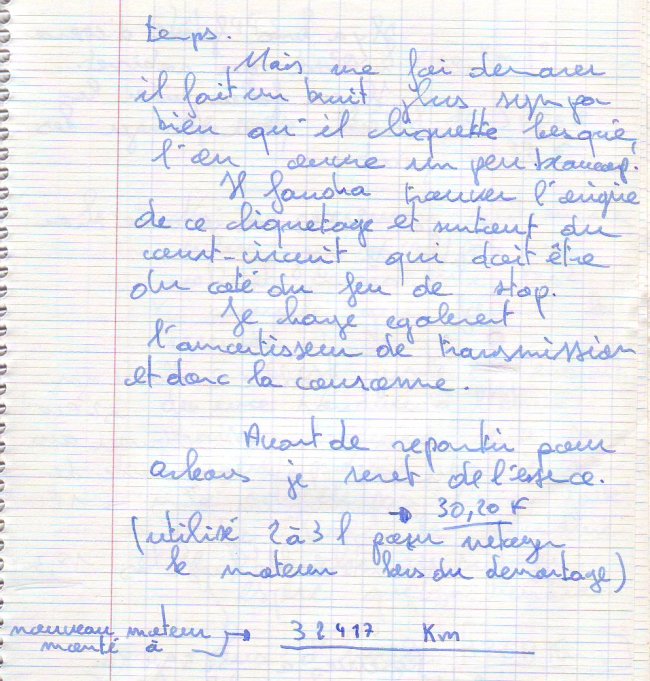 temps.
Mais une foi demarer
il fait un bruit plus sympa
bien qu'il cliquette lesqué,
l'en œuvre un peu beaucoup.
Il faudra trouver l'origie
de ce cliquetage et surtout du
court-circuit qui doit être
du coté du feu de stop.
Je change egalement
l'amortisseur de transmission
et donc la couronne.
Avant de repartir pour
Orleans je remet de l'essence.
→ 30,20 F
(utilisé 2 à 3 l pour nettoyer
le moteur lors du demontage)
nouveau moteur → 32417 Km
monté à